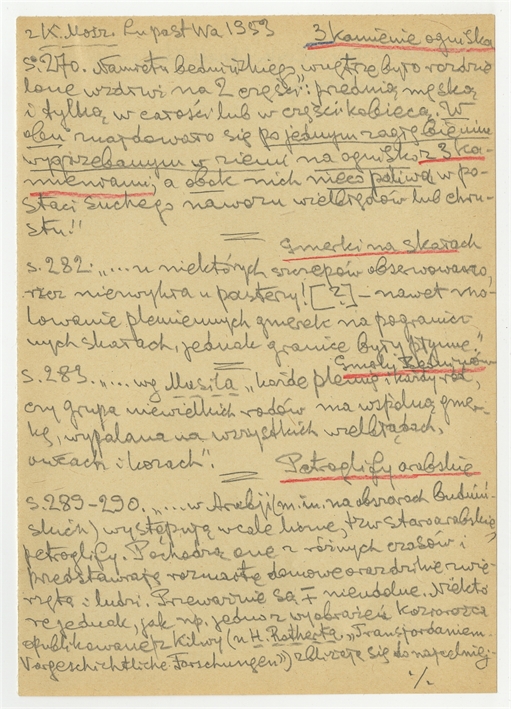 z K. Mosz. Lupast Wa 1953 3 kamienie ogniska
s. 270. Namiotu beduińskiego „wnętrze było rozdzie-
lone wzdłuż na 2 części: przednią męską
i tylką, w całości lub w części kobiecą. W
obu znajdowało się po jednym zagłębieniu
wygrzebanym w ziemi na ognisko z 3 ka-
mieniami, a obok nich nieco paliwa w po-
staci suchego nawozu wielbłądów lub chru-
stu."
Gmerki na skałach
s. 282. „.... u niektórych szczepów obserwowano,
rzecz niezwykła u pasterzy! [?] – nawet ma-
lowanie plemiennych gmerek na pogranicz-
nych skałach, jednak granice były płynne."
Gmerki Beduinów
s. 283. „.... wg Musila „każde plemię i każdy ród,
czy grupa niewielkich rodów ma wspólną gmer-
kę, wypalaną na wszystkich wielbłądach,
owcach i kozach".
Petroglify arabskie
s. 289-290. „.... w Arabji (m. in. na obszarach beduiń-
skich) występują wcale liczne, tzw staroarabskie
petroglify. Pochodzą one z różnych czasów i
przedstawiają rozmaite domowe oraz dzikie zwie-
rzęta i ludzi. Przeważnie są ∓ nieudolne. Niektó-
re jednak, jak np. jedno z wyobrażeń koziorożca
opublikowane z Kilwy (u H. Rotherta „Transjordanien.
Vorgeschichtliche Forschungen") zbliżają się do najcelniej-
./.